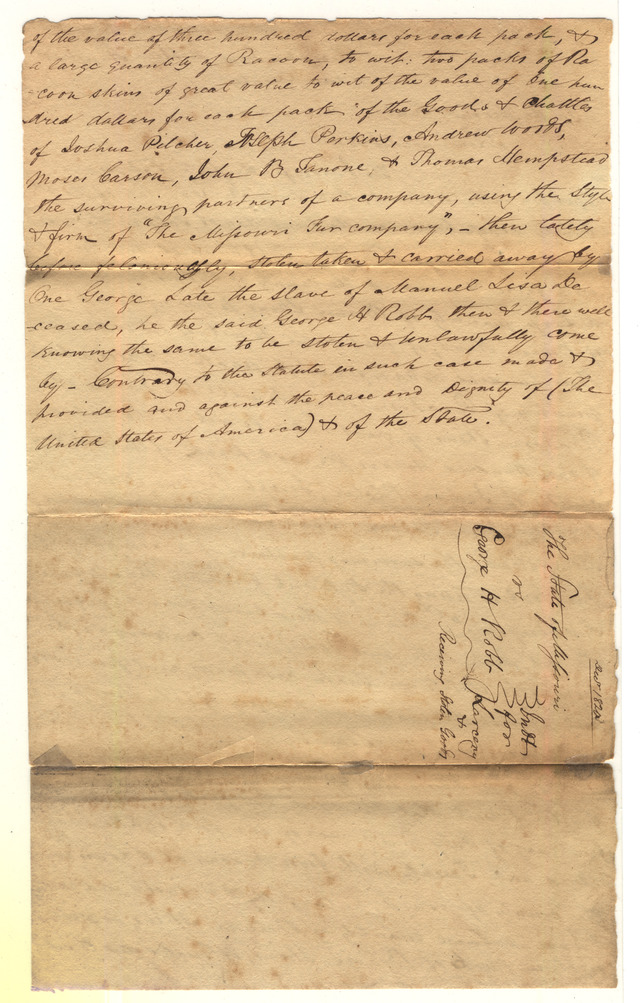 of the value of three hundred dollars for each pack, &
a large quantity of Racoon, to wit: two packs of Ra
-coon skins of great value to wit of the value of One hun
dred dollars for each pack of the Goods & Chattles
of Joshua Pilcher, Joseph Perkins, Andrew Woods,
Moses Carson, John B Zenone, & Thomas Hempstead
the surviving partners of a company, using the Style
& firm of "The Missouri Fur company", - then lately
before feloniously, stolen taken & carried away by
One George Late the slave of Manuel Lisa De
-ceased, he the said George H Robb then & there well
knowing the same to be stolen & unlawfully come
by - Contrary to the Statute in such case made &
provided and against the peace and Dignity of (The
United States of America) & of the State.
The State of Missouri
vs
George H Robb
Indt
for
Larceny
&
Receiving Stolen Goods